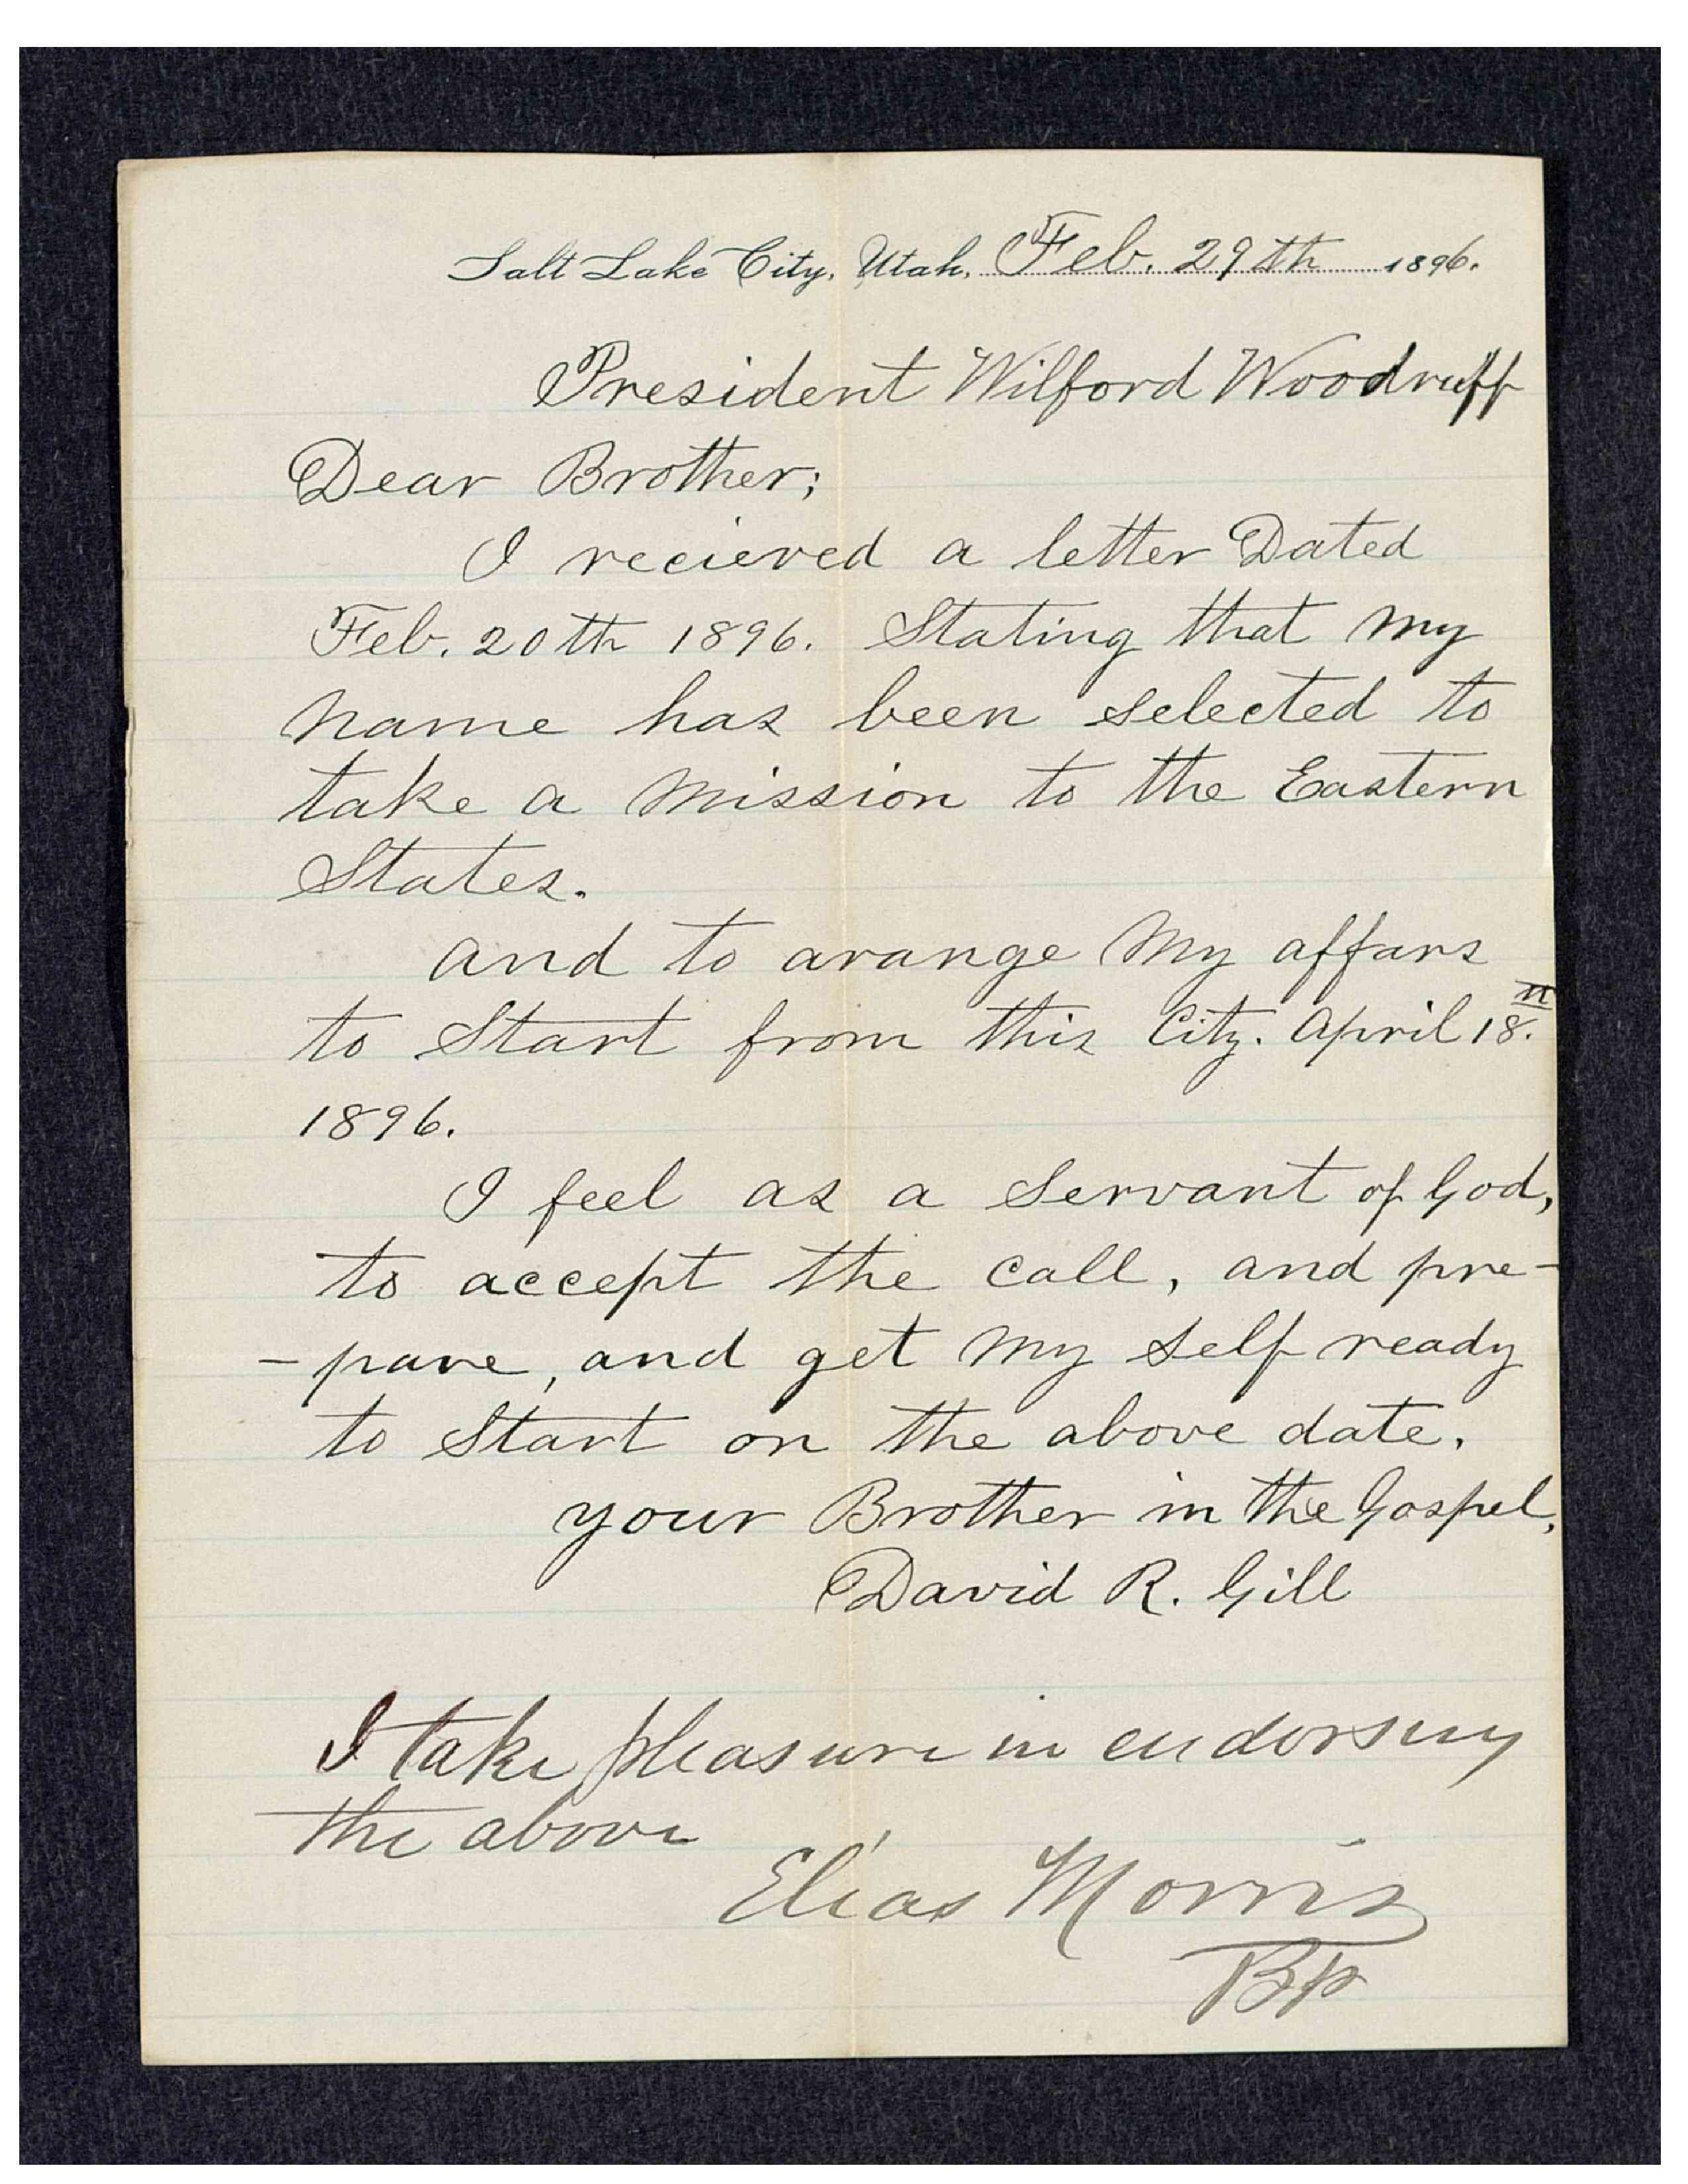 Salt Lake City, Utah, Feb. 29th 1896.
President Wilford Woodruff
Dear Brother;
I recieved a letter Dated
Feb. 20th 1896. Stating that my
name has been selected to
take a mission to the Eastern
States.
and to arange my affars
to Start from this City. April 18th.
1896.
I feel as a Servant of God,
to accept the call, and pre-
-pare, and get my self ready
to Start on the above date.
your Brother in the Gospel,
David R. Gill
I take pleasure in endorsing
the above
Elias Morris
Bp